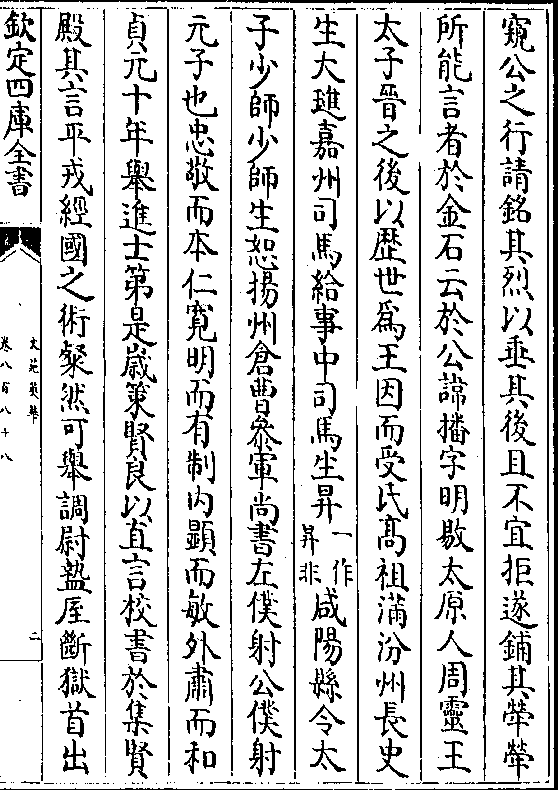 窺公之行請銘其烈以垂其後且不宜拒遂鋪其犖犖
所能言者於金石云於公諱播字明敭太原人周靈王
太子晉之後以歴世為王因而受氏髙祖滿汾州長史
生大璡嘉州司馬給事中司馬生昇一作昇非咸陽縣令太
子少師少師生恕揚州倉曹叅軍尚書左僕射公僕射
元子也忠敬而本仁寛明而有制内顯而敏外肅而和
貞元十年舉進士第是歲策賢良以直言校書於集賢
殿其言平戎經國之術粲然可舉調尉盩厔斷獄首出
欽定四庫全書
文苑英華
卷八百八十八
二